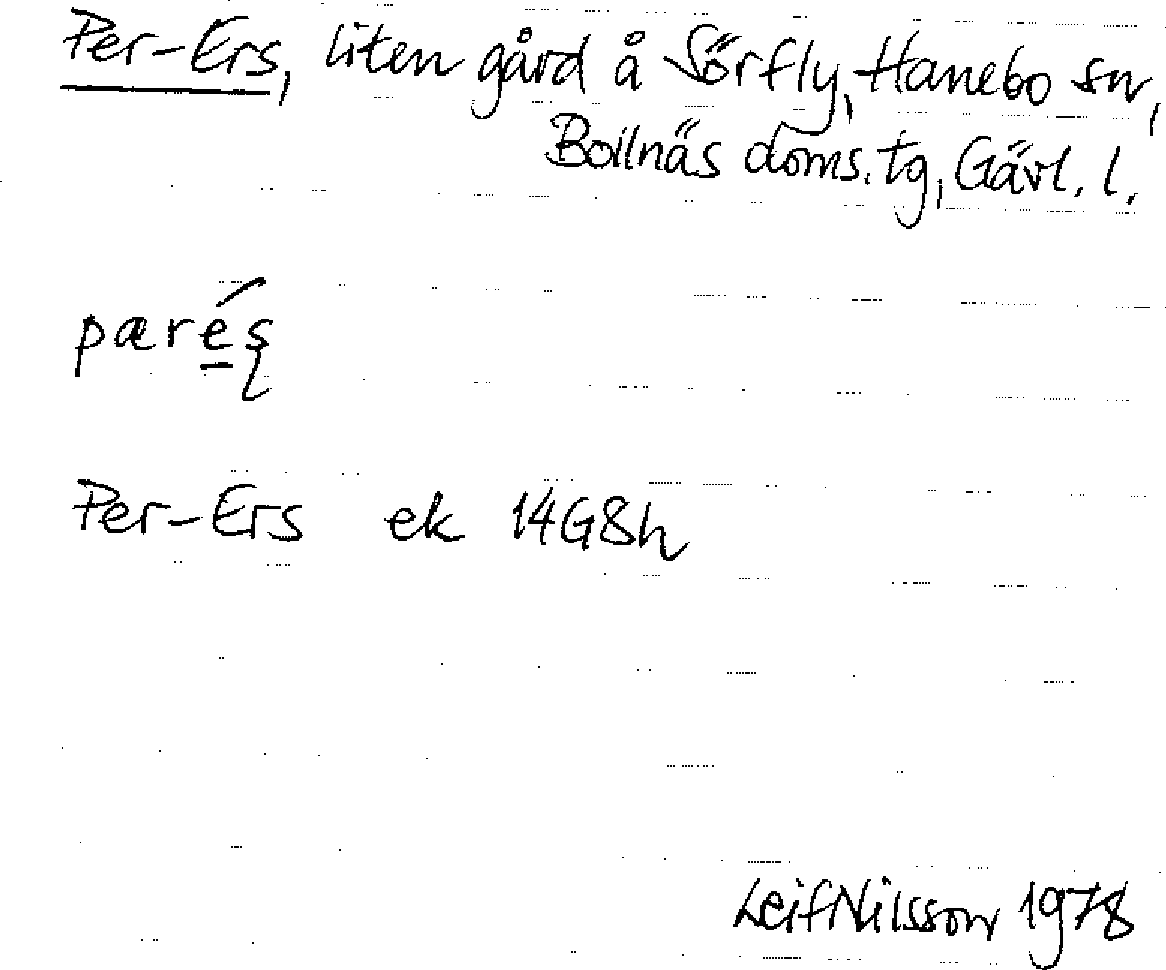 Per-Ers, liten gård å Sörfly, Hanebo sn,
Bollnäs doms. tg, Gävl. l.
pærés̨
Per-Ers ek 14G8h
Leif Nilsson 1978